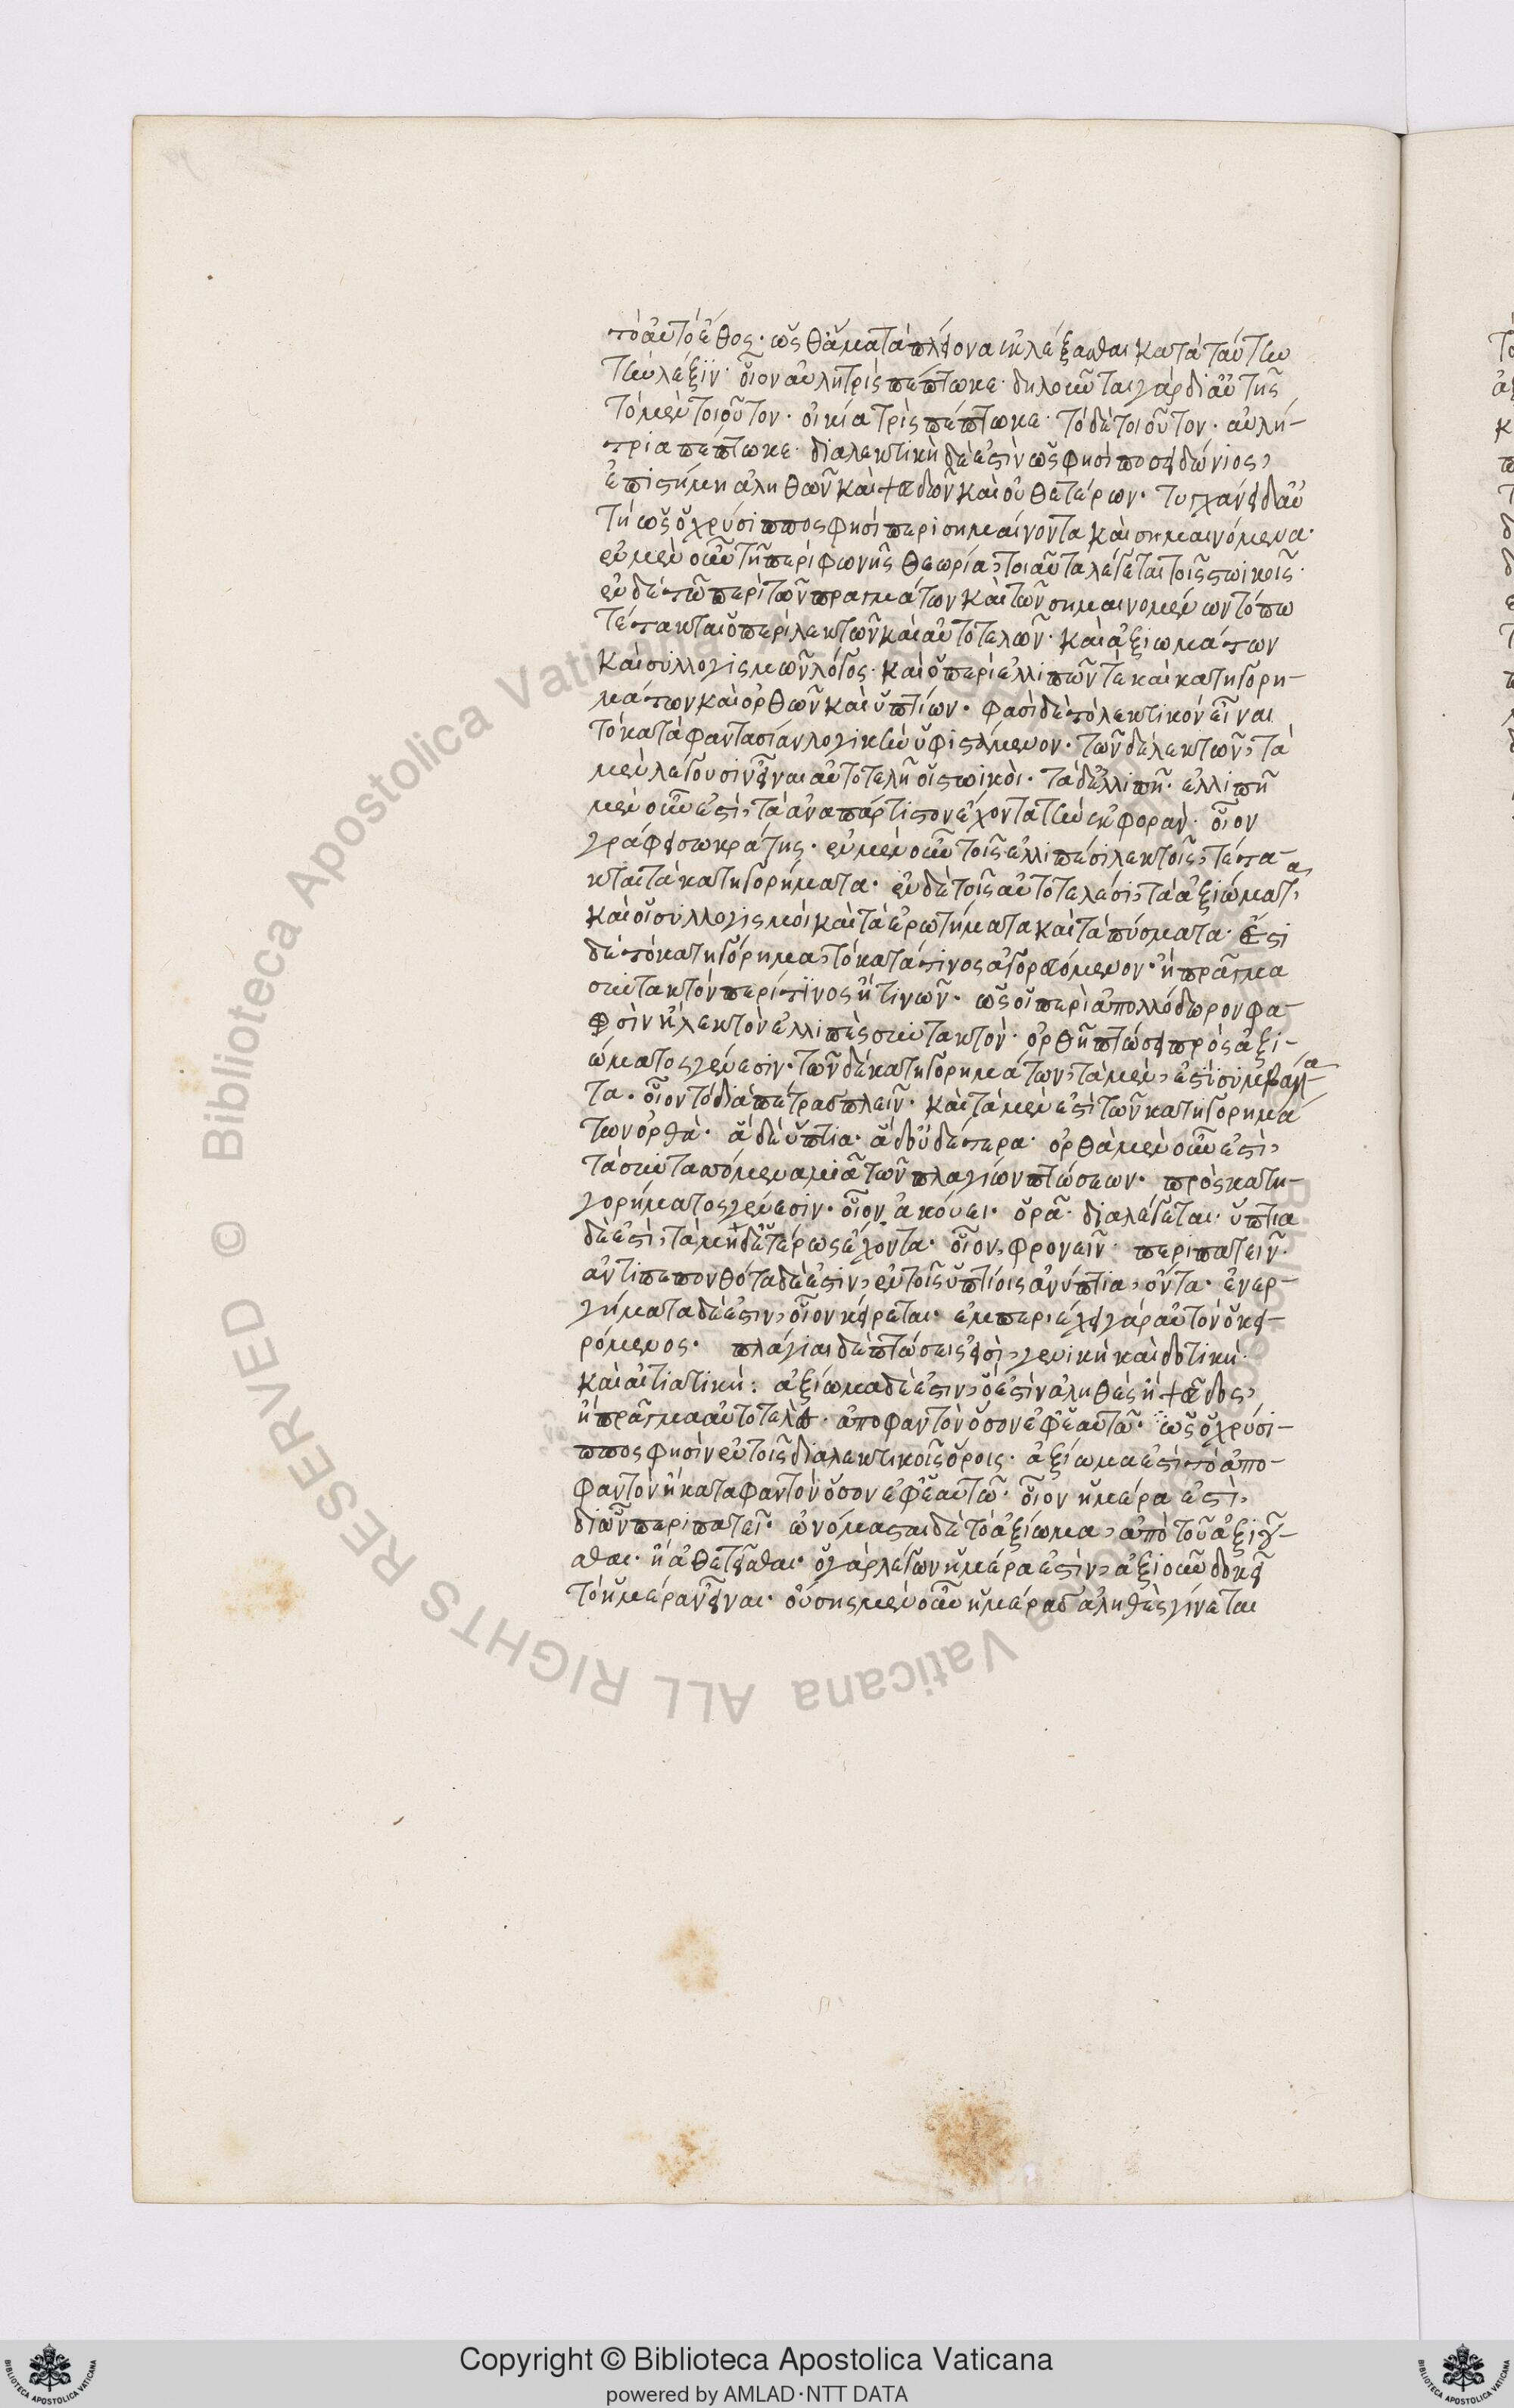 τὸ αὐτὸ ἔθος. ὥς θ' ἅματα πλείονα ἐκλέξασθαι κατὰ ταύτην
τὴν λέξϊν. οἷον αὐλητρὶς πέπτωκε. δηλοῦνται γὰρ δι αὐτῆς
τὸ μὲν τοιοῦτον. οἰκία τρὶς πέπτωκε. τὸ δὲ τοιοῦτον. αὐλή-
τρια πέπτωκε. διαλεκτικὴ δέ ἐστὶν ὥς φησὶ ποσειδώνιος,
ἐπιστήμη ἀληθῶν καὶ ψευδῶν καὶ οὐθετέρων. τυγχάνει δ' αὐ
τὴ ὡς ὁ χρύσιππος φησὶ περὶ σημαίνοντα καὶ σημαινόμενα.
ἐν μὲν οὖν τῆ περὶ φωνῆς θεωρία, τοιαῦτα λέγεται τοῖς στωικοῖς.
ἐν δὲ τῶ περὶ τῶν πραγμάτων καὶ τῶν σημαινομένων τόπω
τέτακται ὁ περὶ λεκτῶν καὶ αὐτοτελῶν. καὶ ἀξιωμάτων
καὶ συλλογισμῶν λόγος. καὶ ὁ περὶ ἐλλιπῶν τὲ καὶ κατηγορη-
μάτων καὶ ὀρθῶν καὶ ὑπτίων. φασὶ δὲ τὸ λεκτικὸν εἶναι
τὸ κατὰ φαντασίαν λογικὴν ὑφιστάμενον. τῶν δὲ λεκτῶν, τὰ
μὲν λέγουσιν εἶναι αὐτοτελῆ οἱ στωικοὶ. τὰ δ' ἐλλιπῆ. ἐλλιπῆ
μὲν οὖν ἐστὶ, τὰ ἀναπάρτιστον ἔχοντα τὴν ἐκφορὰν. οἷον
γράφει σωκράτης. ἐν μὲν οὖν τοῖς ἐλλιπέσι λεκτοῖς, τέτα-
κται τὰ κατηγορήματα. ἐν δὲ τοῖς αὐτοτελέσι, τὰ ἀξιώματα,
καὶ οἱ συλλογισμοὶ καὶ τὰ ἐρωτήματα καὶ τὰ πύσματα. Ἔστι
δὲ τὸ κατηγόρημα, τὸ κατά τινος ἀγορευόμενον. ἢ πρᾶγμα
συντακτὸν περί τϊνος ἢ τινῶν. ὡς οἱ περὶ ἀπολλόδωρον φα-
σὶν ἢ λεκτὸν ἐλλιπὲς συντακτὸν. ὀρθῆ πτώσει πρὸς ἀξι-
ώματος γένεσιν. τῶν δὲ κατηγορημάτων, τὰ μὲν, ἐστὶ συμβάμα-
τα. οἷον τὸ διὰ πέτρας πλεῖν. καὶ τὰ μὲν ἐστὶ τῶν κατηγορημά
των ὀρθὰ. ἃ δὲ ὕπτια. ἃ δ' οὐδέτερα. ὀρθὰ μὲν οὖν ἐστὶ,
τὰ συντασσόμενα μιᾶ τῶν πλαγίων πτώσεων. πρὸς κατη-
γορήματος γένεσιν. οἷον ἀκούει. ὁρᾶ. διαλέγεται. ὕπτια
δέ ἐστὶ, τὰ μηδετέρως ἔχοντα. οἷον, φρονεῖν. περιπατεῖν.
ἀντιπεπονθότα δέ ἐστιν, ἐν τοῖς ὑπτίοις ἀνύπτια, ὄντα. ἐνερ-
γήματα δέ ἐστιν, οἷον κείρεται. ἐμπεριέχει γὰρ αὐτὸν ὁ κει-
ρόμενος. πλάγιαι δὲ πτώσεις εἰσὶ, γενικὴ καὶ δοτικὴ.
καὶ αἰτιατικὴ: ἀξίωμα δέ ἐστιν, ὅ ἐστὶν ἀληθὲς ἢ ψεῦδος,
ἢ πρᾶγμα αὐτοτελὲς. ἀποφαντὸν ὅσον ἐφ' ἑαυτῶ. ὡς ὁ χρύσι-
ππος φησὶν ἐν τοῖς διαλεκτικοῖς ὅροις. ἀξίωμα ἐστὶ τὸ ἀπο-
φαντὸν ἢ καταφαντὸν ὅσον ἐφ' ἑαυτῶ. οἷον ἡμέρα ἐστὶ,
δίων περιπατεῖ. ὠνόμασται δὲ τὸ ἀξίωμα, ἀπὸ τοῦ ἀξιοῦ-
σθαι. ἢ ἀθετεῖσθαι. ὁ γὰρ λέγων ἡμέρα ἐστὶν, ἀξιοῦν δοκεῖ
τὸ ἡμέραν εἶναι. οὔσης μὲν οὖν ἡμέρας ἀληθὲς γίνεται
Copyright © Biblioteca Apostolica Vaticana
powered by AMLAD·NTT DATA